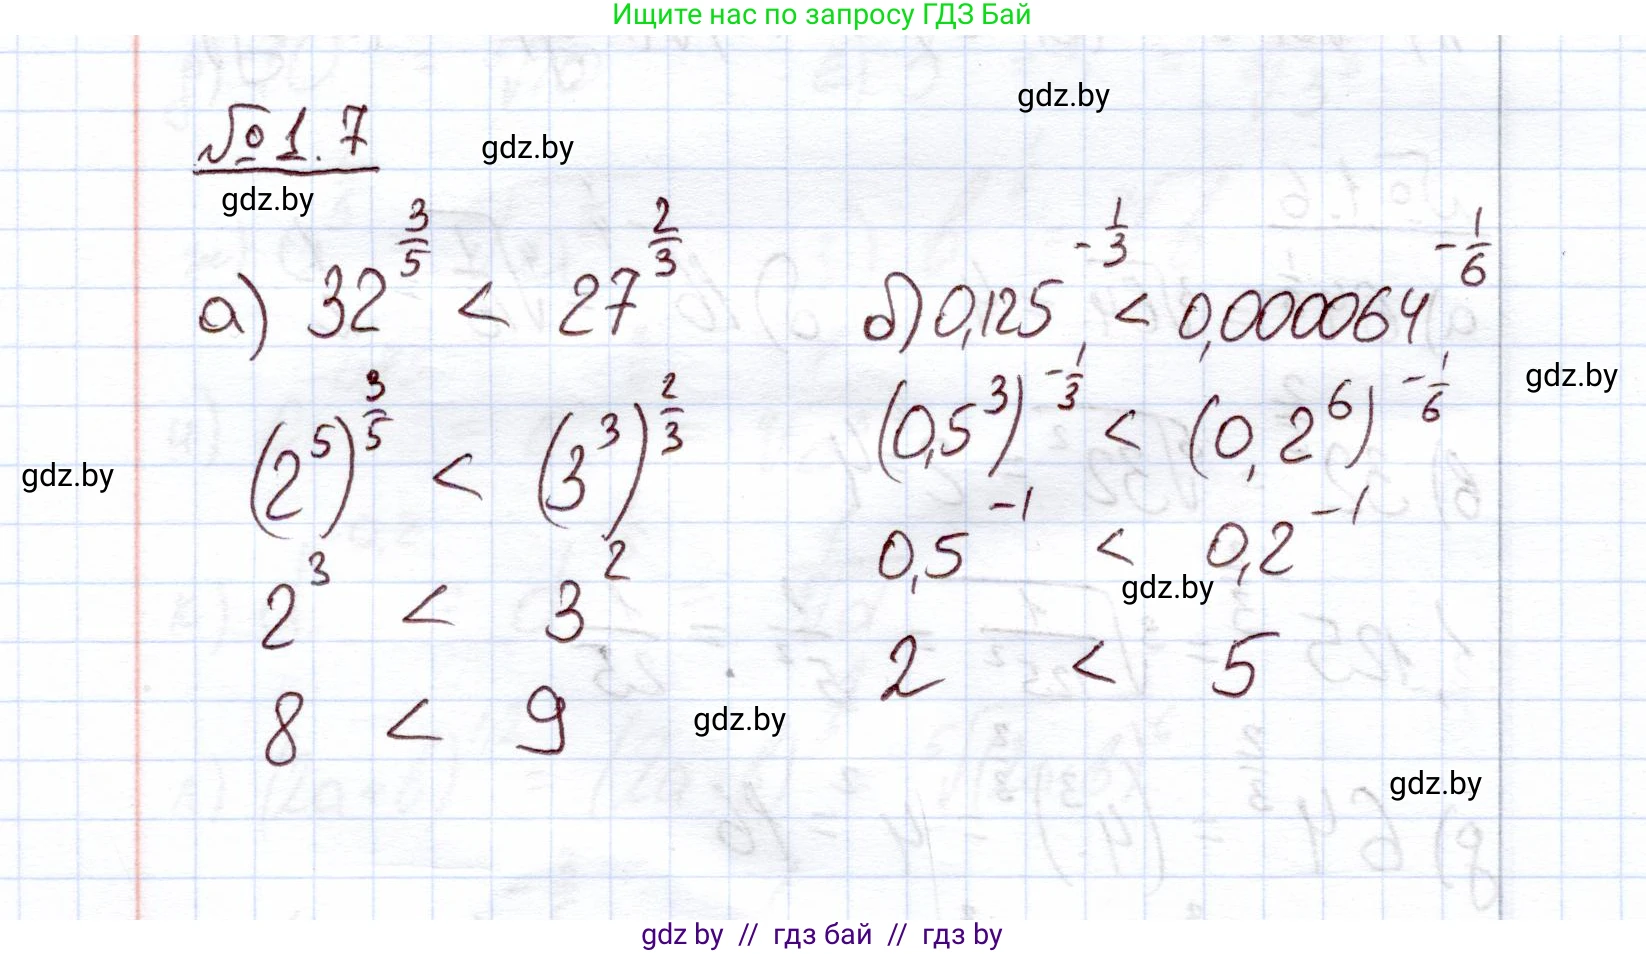 Ищите нас по запросу ГДЗ Бай
gdz.by
№1.7
gdz.by
gdz.by
а) 32^(3/5) < 27^(2/3)
(2^5)^(3/5) < (3^3)^(2/3)
2^3 < 3^2
8 < 9
б) 0,125^(-1/3) < 0,000064^(-1/6)
(0,5^3)^(-1/3) < (0,2^6)^(-1/6)
0,5^(-1) < 0,2^(-1)
2 < 5
gdz.by
gdz.by
gdz.by
gdz.by
gdz.by
gdz by // гдз бай // гдз by